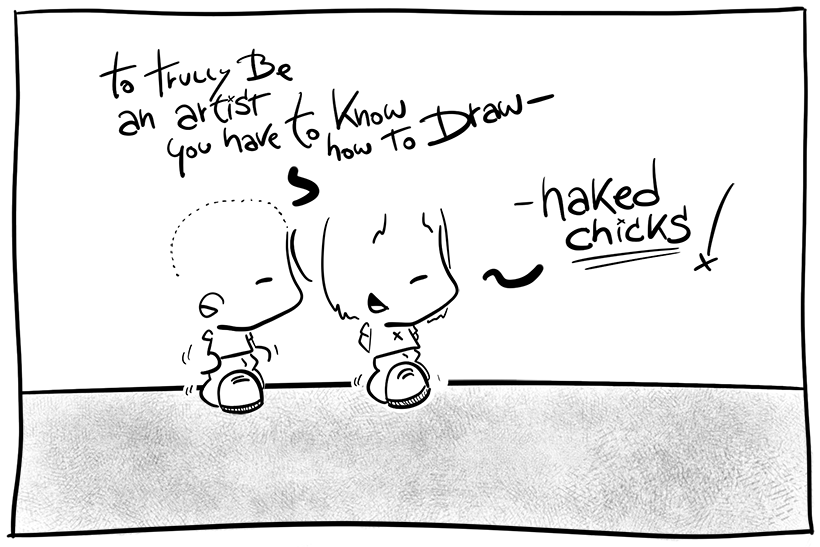 to trully Be
an artist
you have to Know
how to Draw—
-naked
chicks!